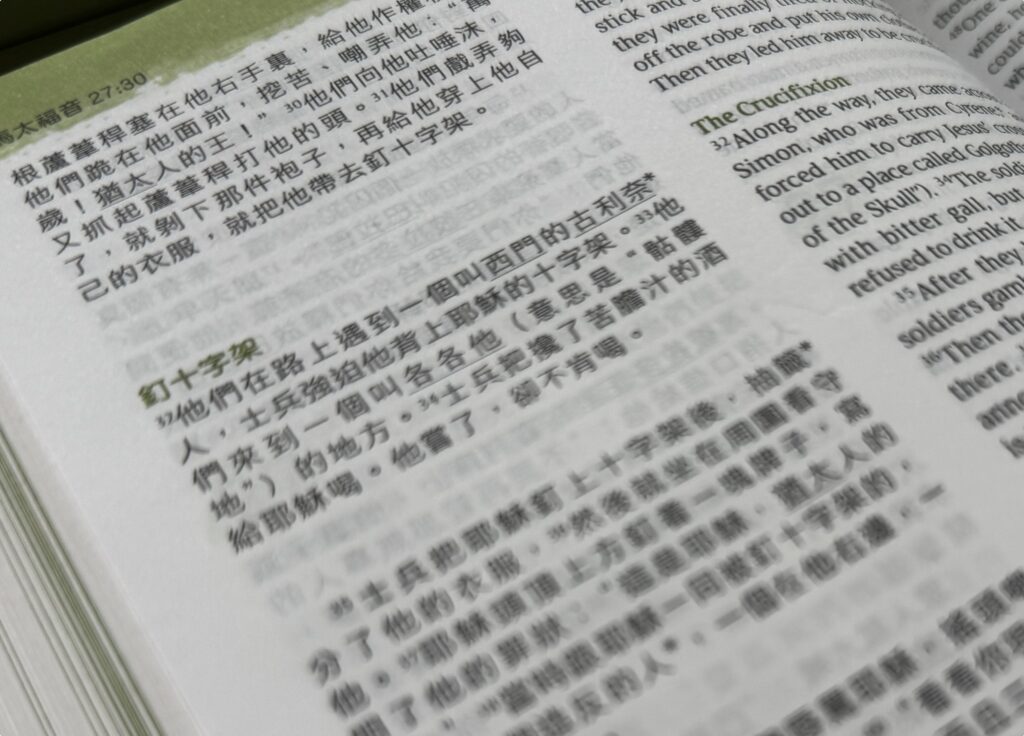 太福音 27:30
根蘆葦稈塞在他右手裏，給他作權
他們跪在他面前，挖苦、嘲弄他：“萬
歲！猶太人的王！”³⁰他們向他吐唾沫，
又抓起蘆葦稈打他的頭。³¹他們戲弄夠
了，就剝下那件袍子，再給他穿上他自
己的衣服，就把他帶去釘十字架。
釘十字架
³²他們在路上遇到一個叫西門的古利奈*
人，士兵強迫他背上耶穌的十字架。³³他
們來到一個叫各各他（意思是“骷髏
地”）的地方。³⁴士兵把攙了苦膽汁的酒
給耶穌喝。他嘗了，卻不肯喝。
³⁵士兵把耶穌釘上十字架後，抽籤*
分了他的衣服，³⁶然後就坐在周圍看守
他。³⁷耶穌頭頂上方釘着一塊牌子，寫
了他的罪狀：“這是耶穌，猶太人的
³⁸當時跟耶穌一同被釘十字架的，
的人*，一個在他右邊，一
“看看你
the
stick and
they were finally tired of
off the robe and put his own clo
Then they led him away to be cru
The Crucifixion
³²Along the way, they came acro
Simon, who was from Cyrene,
forced him to carry Jesus’ cros
out to a place called Golgoth
of the Skull”). ³⁴The soldi
with bitter gall, but
refused to drink it.
³⁵After they
soldiers gaml
³⁶Then the
there.
anno
is
⁴⁸One
wine,
could